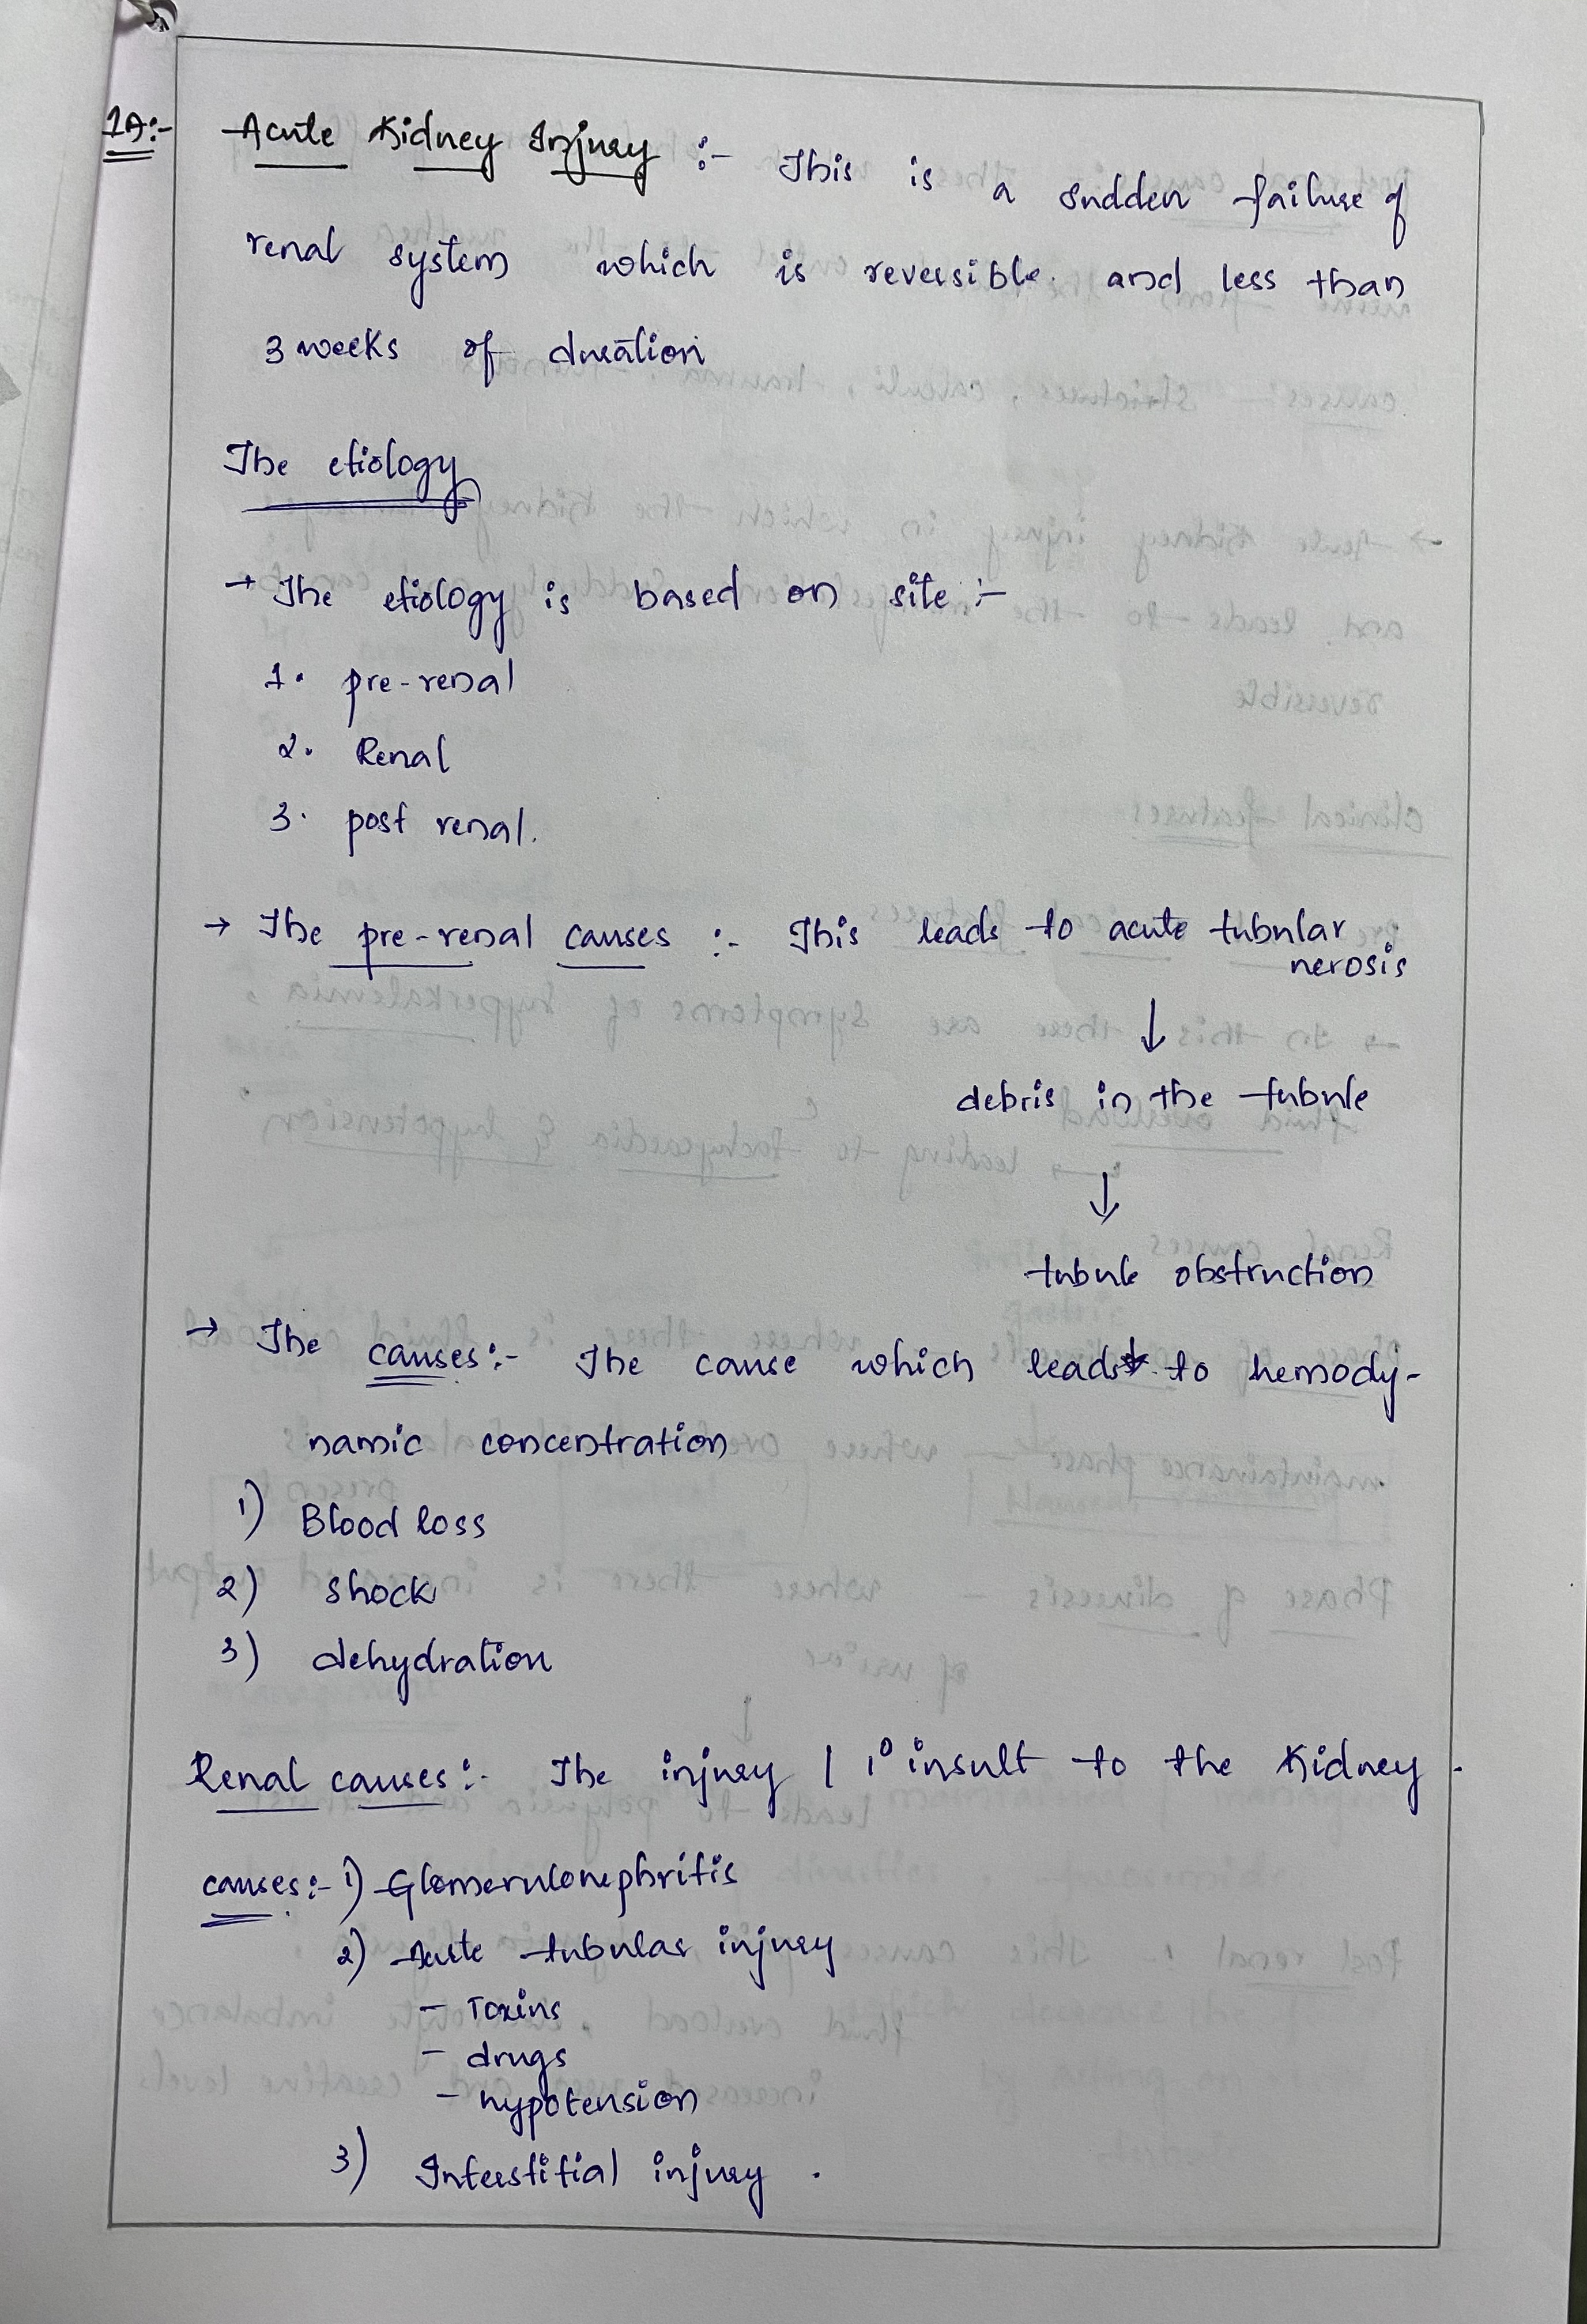 1A:-
Acute Kidney Injury :- This is a sudden failure of
renal system which is reversible. and less than
3 weeks of duration
The etiology
→ The etiology is based on site :-
1. pre-renal
2. Renal
3. post renal.
→ The pre-renal causes :- This leads to acute tubular
nerosis
↓
debris in the tubule
↓
tubule obstruction
→ The causes:- The cause which leads to hemody-
namic concentration
1) Blood loss
2) shock
3) dehydration
Renal causes:- The injury / 1° insult to the Kidney.
causes:- 1) Glomerulonephritis
2) Acute tubular injury
- Toxins
- drugs
- hypotension
3) Interstitial injury.